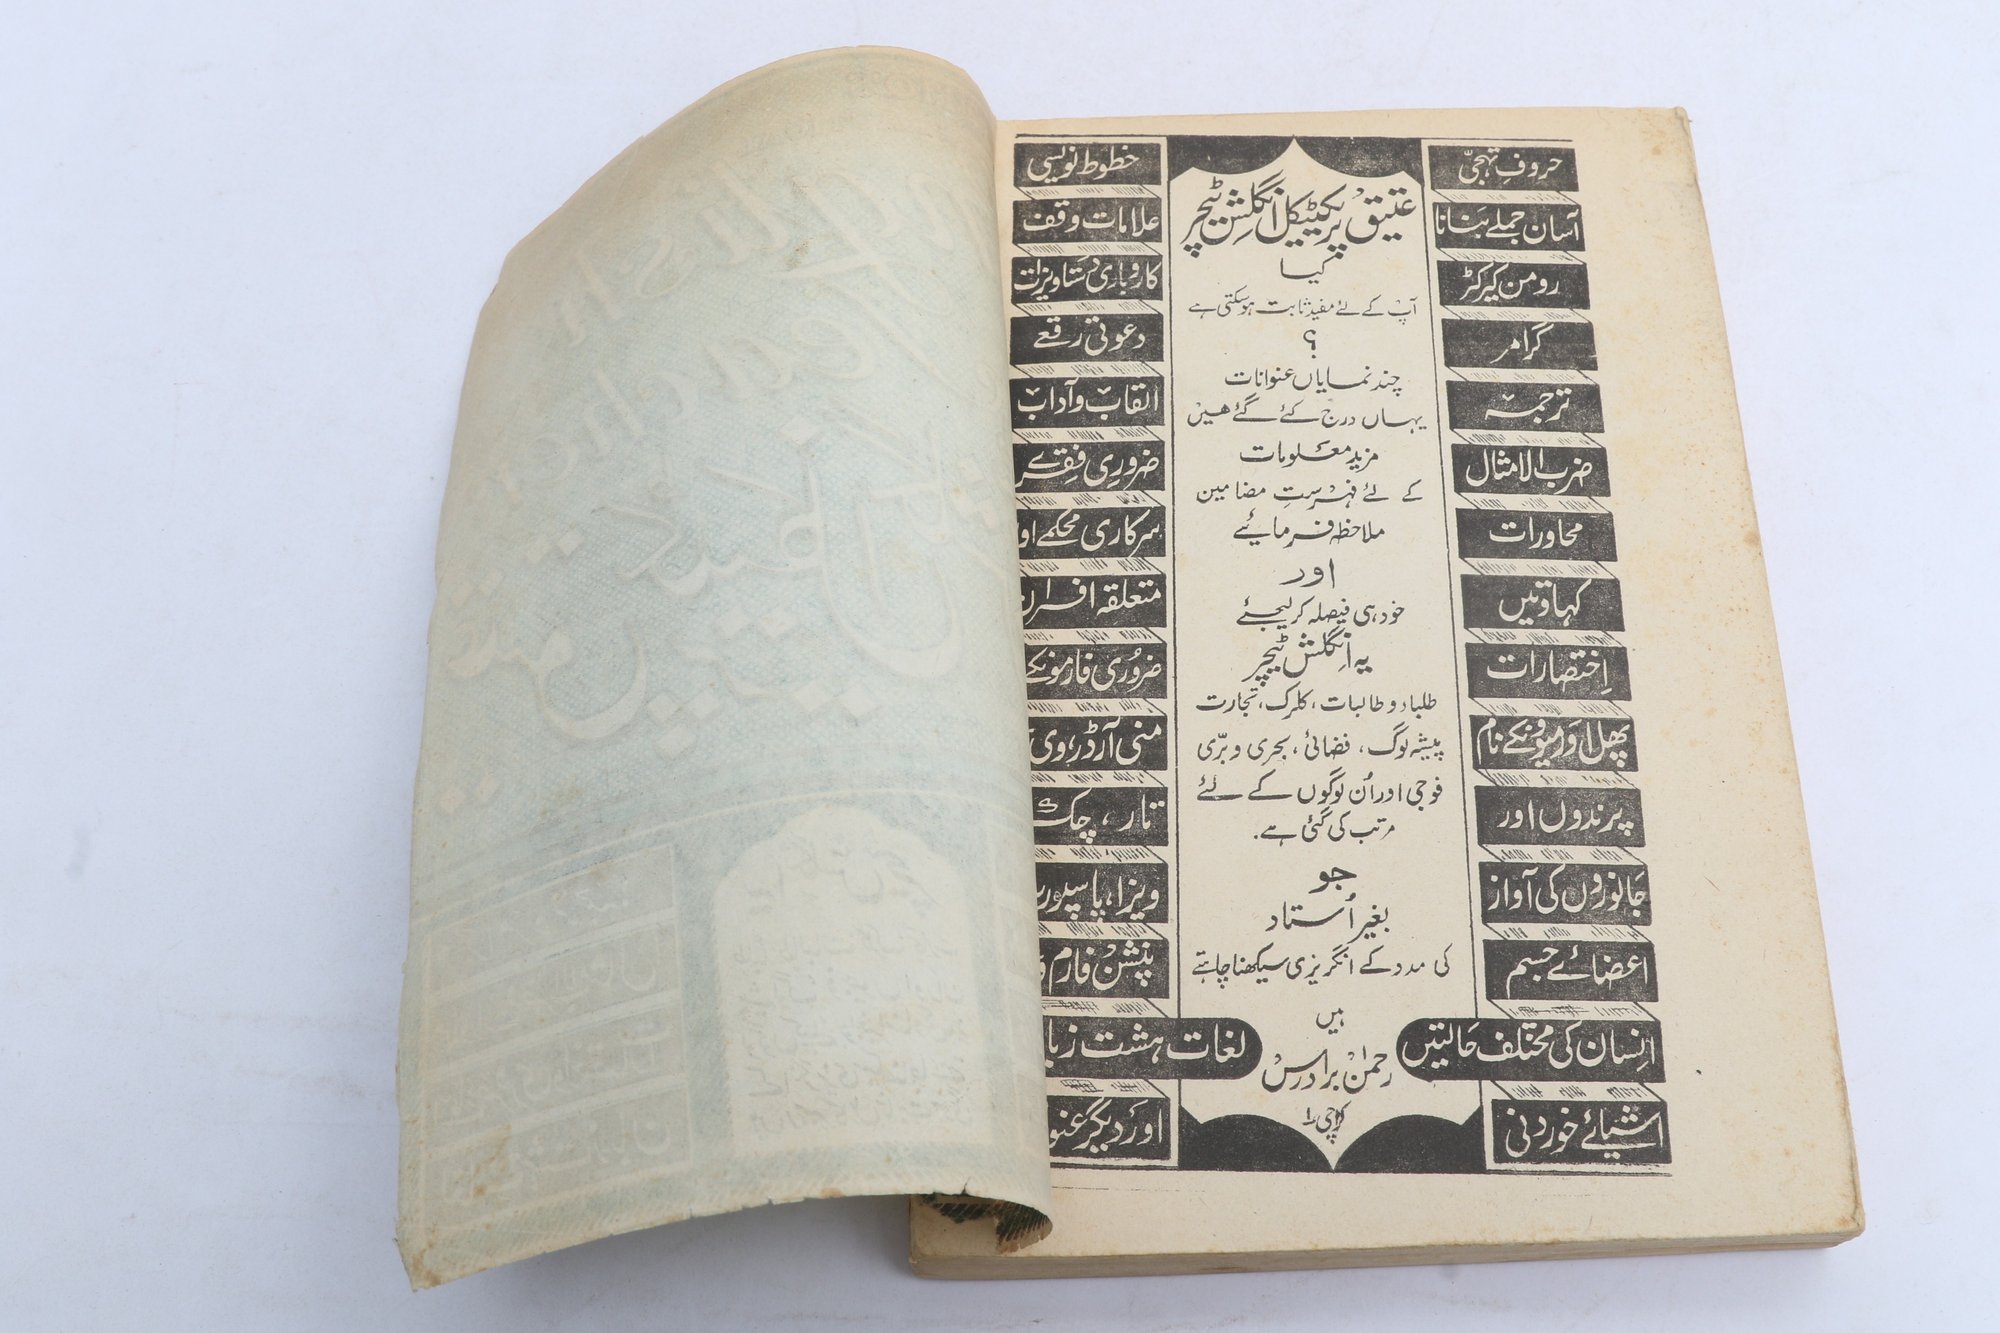 حروفِ تہجّی
آسان جملے بنانا
رومن کیرکٹر
گرامر
ترجمہ
ضرب الامثال
محاورات
کہاوتیں
اِختصارات
پھل اور میوؤنکے نام
پرندوں اور
جانوروں کی آواز
اعضائے جسم
انسان کی مختلف حالتیں
اشیائے خوردنی
عتیق پریکٹیکل انگلش ٹیچر
کیا
آپ کے لئے مفید ثابت ہوسکتی ہے
؟
چند نمایاں عنوانات
یہاں درج کئے گئے ھیں
مزید معلومات
کے لئے فہرستِ مضامین
ملاحظہ فرمائیے
اور
خود ہی فیصلہ کرلیجئے
یہ انگلش ٹیچر
طلباء و طالبات، کلرک، تجارت
پیشہ لوگ، فضائی، بحری و برّی
فوجی اور اُن لوگوں کے لئے
مرتب کی گئی ہے۔
جو
بغیر اُستاد
کی مدد کے انگریزی سیکھنا چاہتے
ہیں
رحمٰن برادرس
کراچی ۱
خطوط نویسی
علامات وقف
کاروباری دستاویزات
دعوتی رقعے
القاب و آداب
ضروری فقرے
سرکاری محکمے اور
متعلقہ افسران
ضروری فارمونکے
منی آرڈر، وی
تار، چک
ویزا، پاسپورٹ
پنشن فارم و
لغات ہشت زبا
اور دیگر عنو